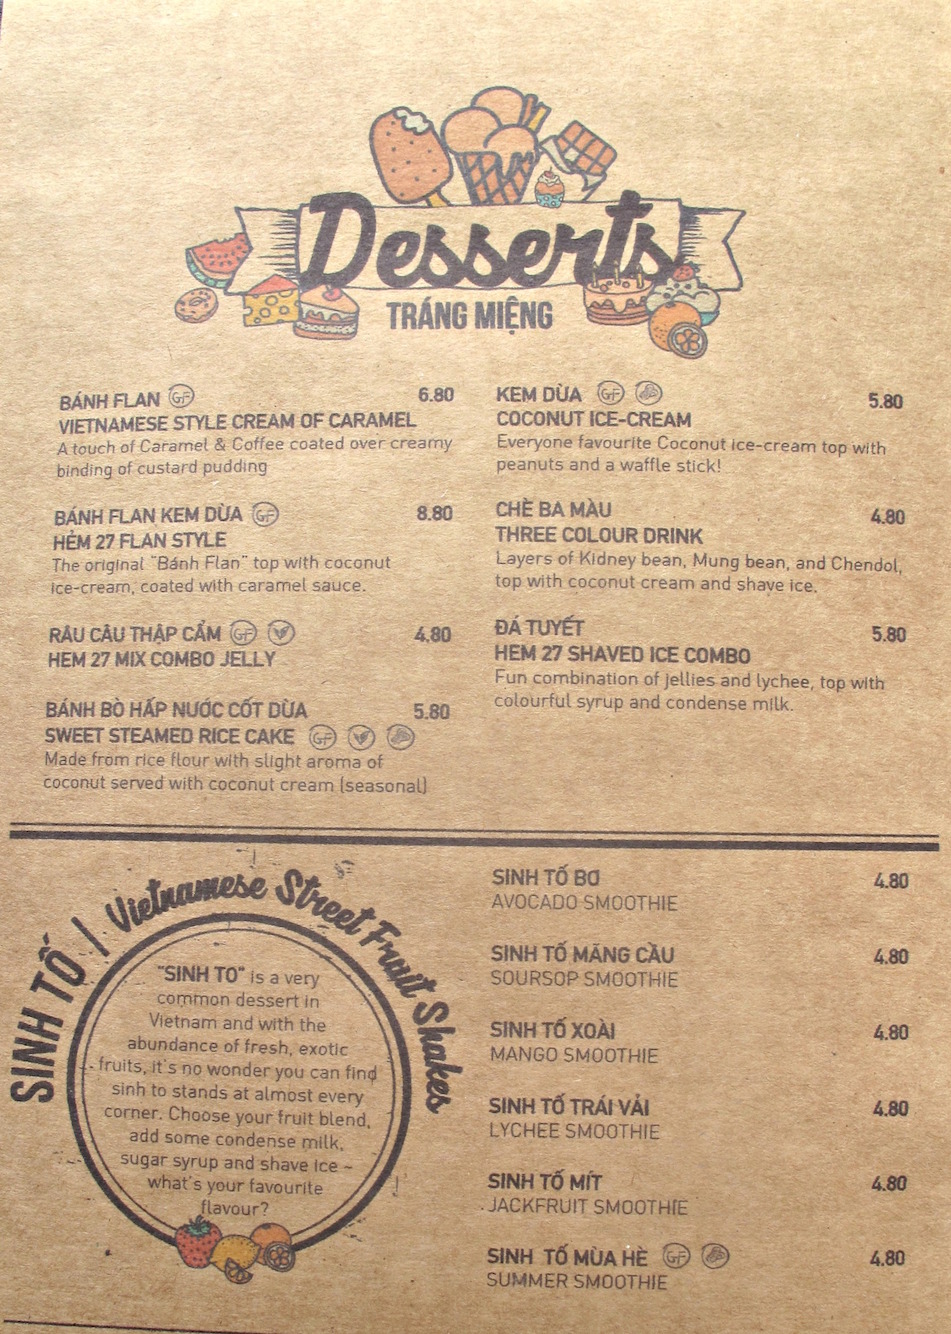 Desserts
TRÁNG MIỆNG
BÁNH FLAN GF 6.80
VIETNAMESE STYLE CREAM OF CARAMEL
A touch of Caramel & Coffee coated over creamy
binding of custard pudding
BÁNH FLAN KEM DỪA GF 8.80
HẺM 27 FLAN STYLE
The original "Bánh Flan" top with coconut
ice-cream, coated with caramel sauce.
RÂU CÂU THẬP CẨM GF 4.80
HEM 27 MIX COMBO JELLY
BÁNH BÒ HẤP NƯỚC CỐT DỪA 5.80
SWEET STEAMED RICE CAKE GF
Made from rice flour with slight aroma of
coconut served with coconut cream (seasonal)
KEM DỪA GF 5.80
COCONUT ICE-CREAM
Everyone favourite Coconut ice-cream top with
peanuts and a waffle stick!
CHÈ BA MÀU 4.80
THREE COLOUR DRINK
Layers of Kidney bean, Mung bean, and Chendol,
top with coconut cream and shave ice.
ĐÁ TUYẾT 5.80
HEM 27 SHAVED ICE COMBO
Fun combination of jellies and lychee, top with
colourful syrup and condense milk.
SINH TỐ | Vietnamese Street Fruit Shakes
"SINH TO" is a very
common dessert in
Vietnam and with the
abundance of fresh, exotic
fruits, it's no wonder you can find
sinh to stands at almost every
corner. Choose your fruit blend,
add some condense milk,
sugar syrup and shave ice ~
what's your favourite
flavour?
SINH TỐ BƠ 4.80
AVOCADO SMOOTHIE
SINH TỐ MÃNG CẦU 4.80
SOURSOP SMOOTHIE
SINH TỐ XOÀI 4.80
MANGO SMOOTHIE
SINH TỐ TRÁI VẢI 4.80
LYCHEE SMOOTHIE
SINH TỐ MÍT 4.80
JACKFRUIT SMOOTHIE
SINH TỐ MÙA HÈ GF 4.80
SUMMER SMOOTHIE